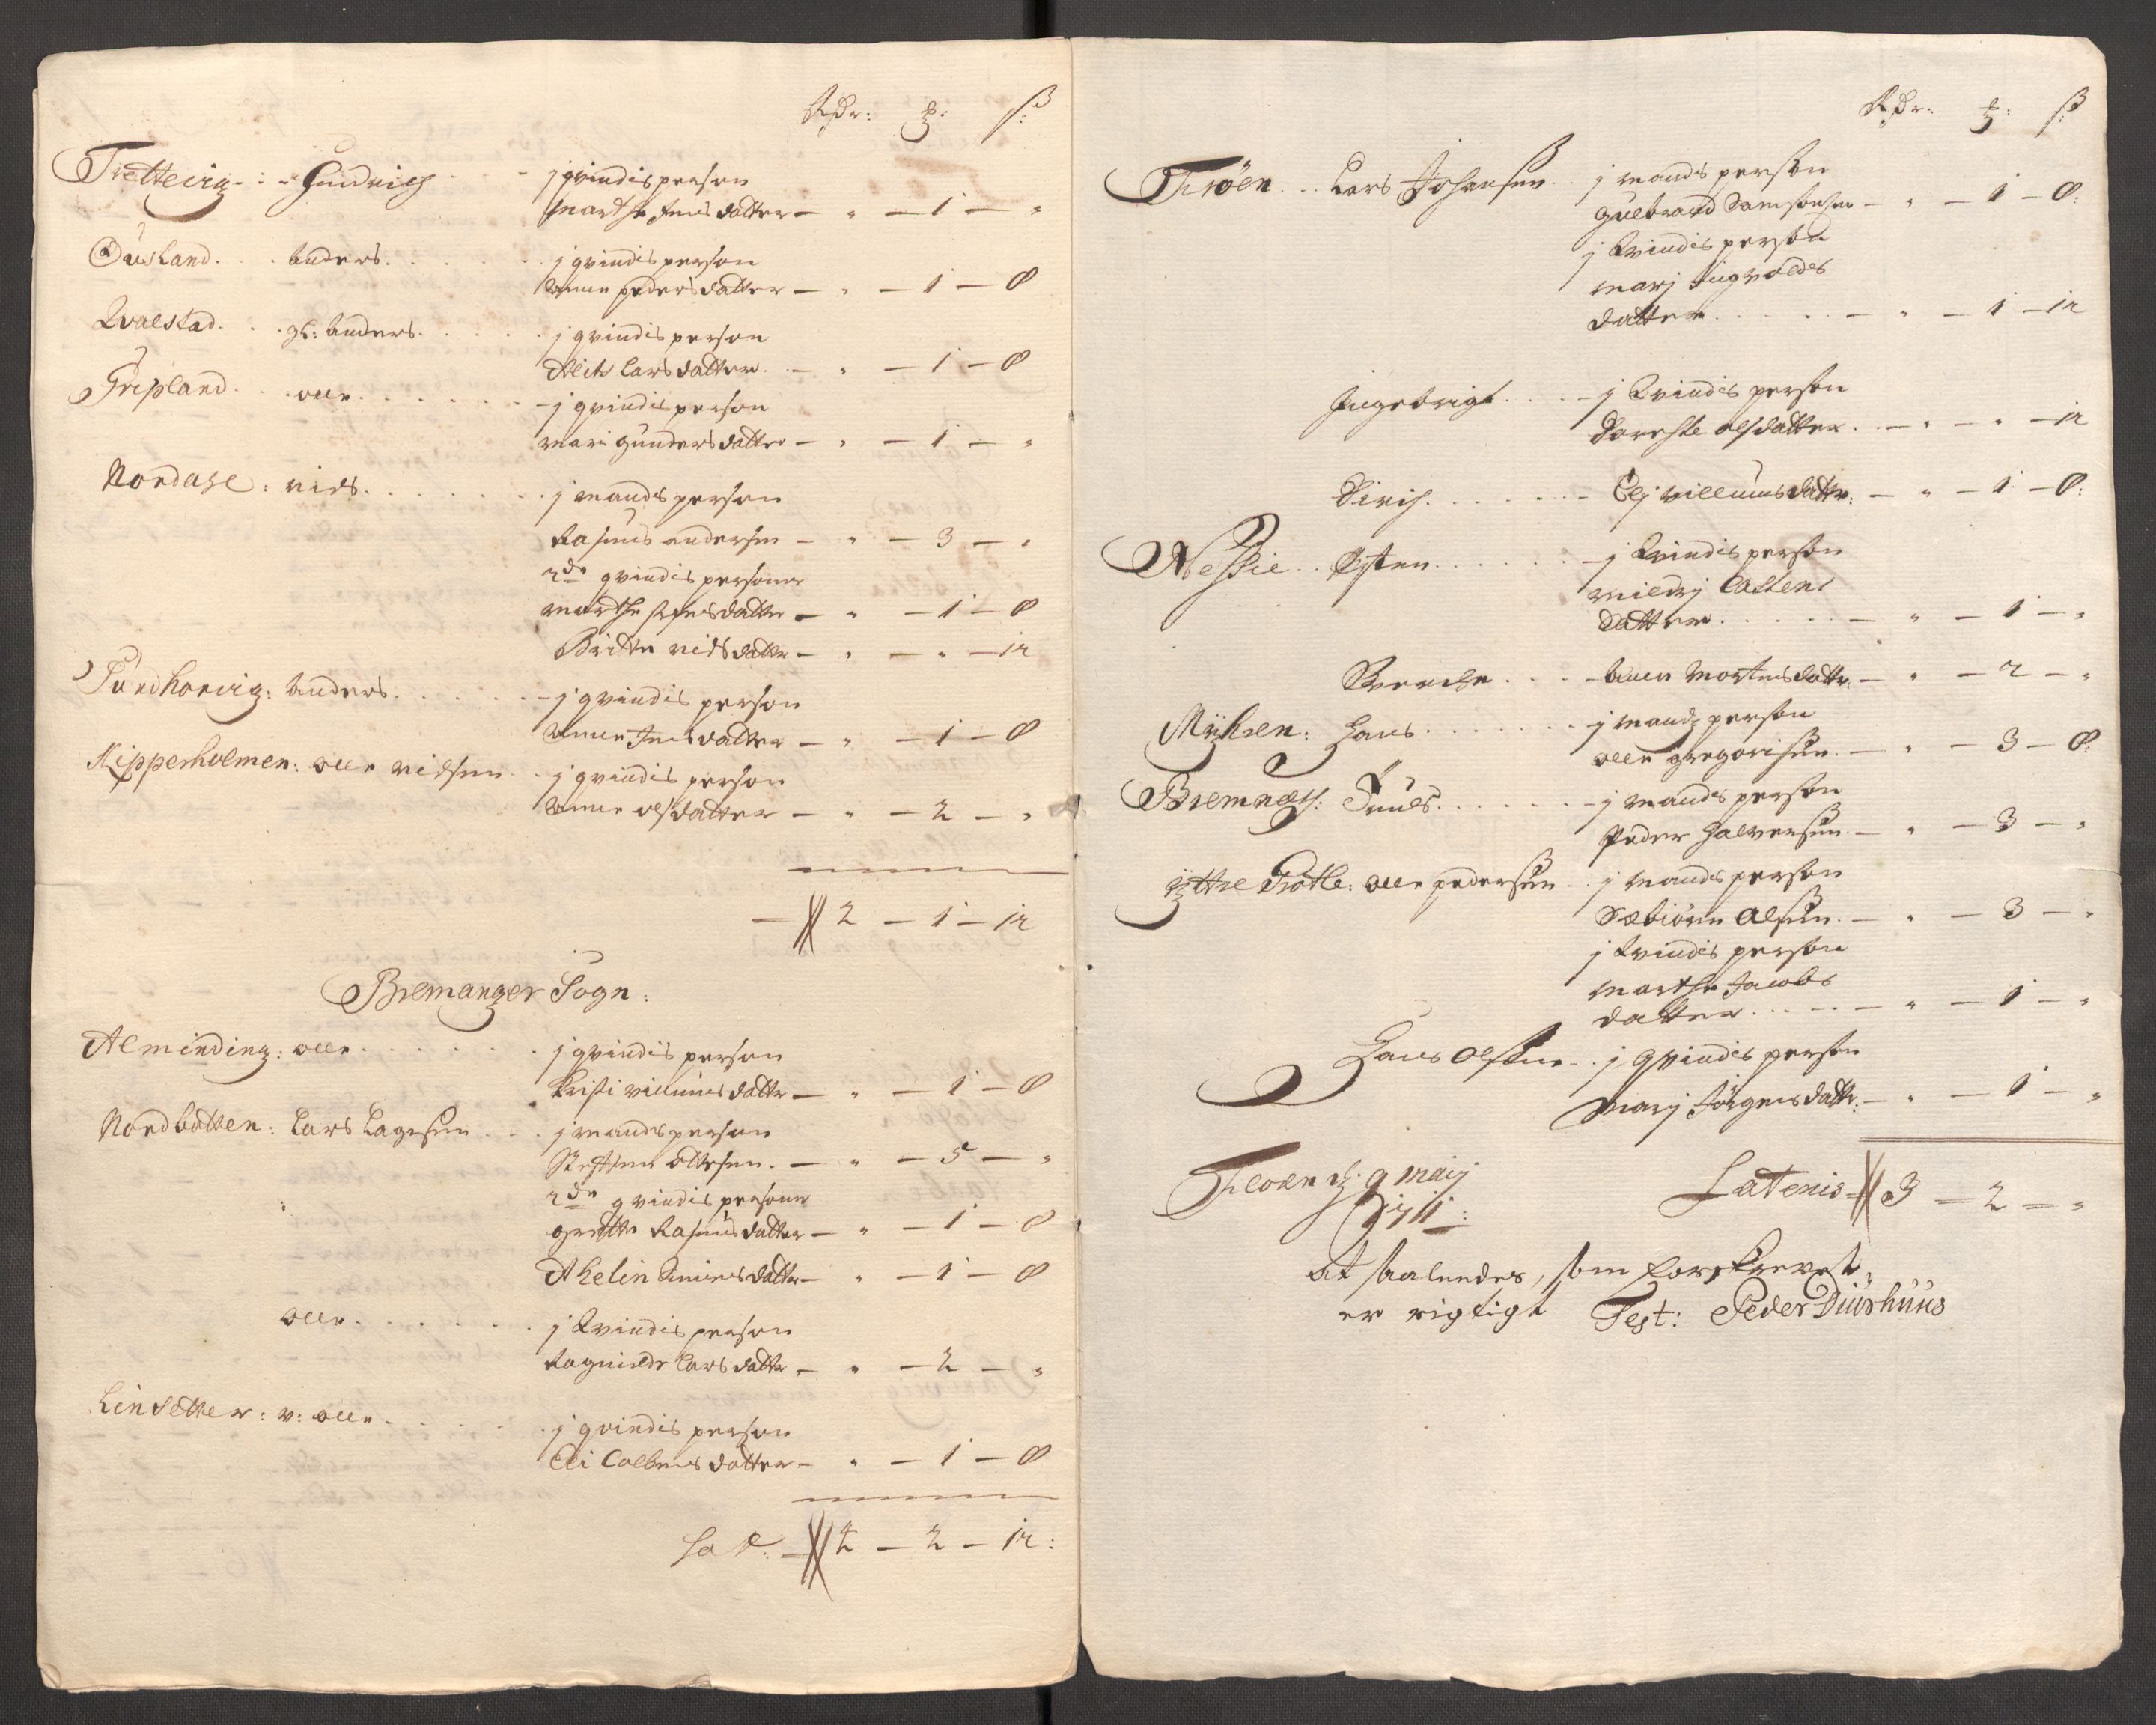 Rdr: ꝸ: ß:
Trettevig - Hendrich . . 1 qvindis person
Marthe Jensdatter — " — 1 — "
Ousland . . Anders . . . 1 qvindis person
Anne Pedersdatter — " — 1 — 8
Qvalstad . . gl: Anders . . . 1 qvindis person
Alits Larsdatter — " — 1 — 8
Gripland . . Olle . . . 1 qvindis person
Mari Gundersdatter — " — 1 — "
Nordahl : Niels . . . 1 mands person
Rasmus Andersen — " — 3 — "
2de qvindis personer
Marthe Jensdatter — " — 1 — 8
Britte Nielsdatter — " — " — 12
Anders . . . 1 qvindis person
Anne Jensdatter — " — 1 — 8
Kipperholmen: Olle Nielsen . . 1 qvindis person
Anne Olsdatter — " — 2 — "
— 2 — 1 — 12
Bremanger Sogn:
Alminding: Olle . . . 1 qvindis person
Kristi Villumsdatter — " — 1 — 8
Nordbotten: Lars Lagesen . . 1 mands person
Steffen Ottesen. — " — 5 — "
2de qvindis personer
Grette Rasmusdatter — " — 1 — 8
Ahelin datter — " — 1 — 8
Olle . . . 1 Kvindis person
Ragnilde Larsdatter — " — 2 — "
Lindsetter: v: Olle . . . 1 qvindis person
Eli Colbensdatter — " — 1 — 8
Lat: — 2 — 2 — 12:
Rdr: ꝸ: ß:
Frøen . . Lars Johansen . . 1 mands person
Gulbrand Samsonsen — " — 1 — 8:
1 Kvindis person
Marj Ingvolds
datter . . . — " — 1 — 12
Ingebrigt . . . 1 Kvindis person
Dorethe Olsdatter . . — " — " — 12
Dirich . . . Elj Villumsdatter: — " — 1 — 8:
Nessie . . Østen . . . 1 Kvindis person
Mildrj Castens
datter . . . — " — 1 — "
Sverche . . . Anne Mortensdatter: — " — 2 — "
Myhren: Hans . . . 1 mands person
Olle Gregorisen. — " — 3 — 8:
Bremnes: Truls . . . 1 mands person
Peder Halversen. — " — 3 — "
Yttre Botle: Olle Pedersen . . 1 mands person
Sæbiørn Olsen. — " — 3 — "
1 Kvindis person
Marthe Jacobs
datter . . . — " — 1 — "
Hans Olsen . . 1 Qvindis person
Marj Jørgensdatter: — " — 1 — "
Floren d: 9 Maij
1711: Lateris — 3 — 2 — "
At saaledes, som forskrevet,
er rigtigt Test: Peder Duushuus